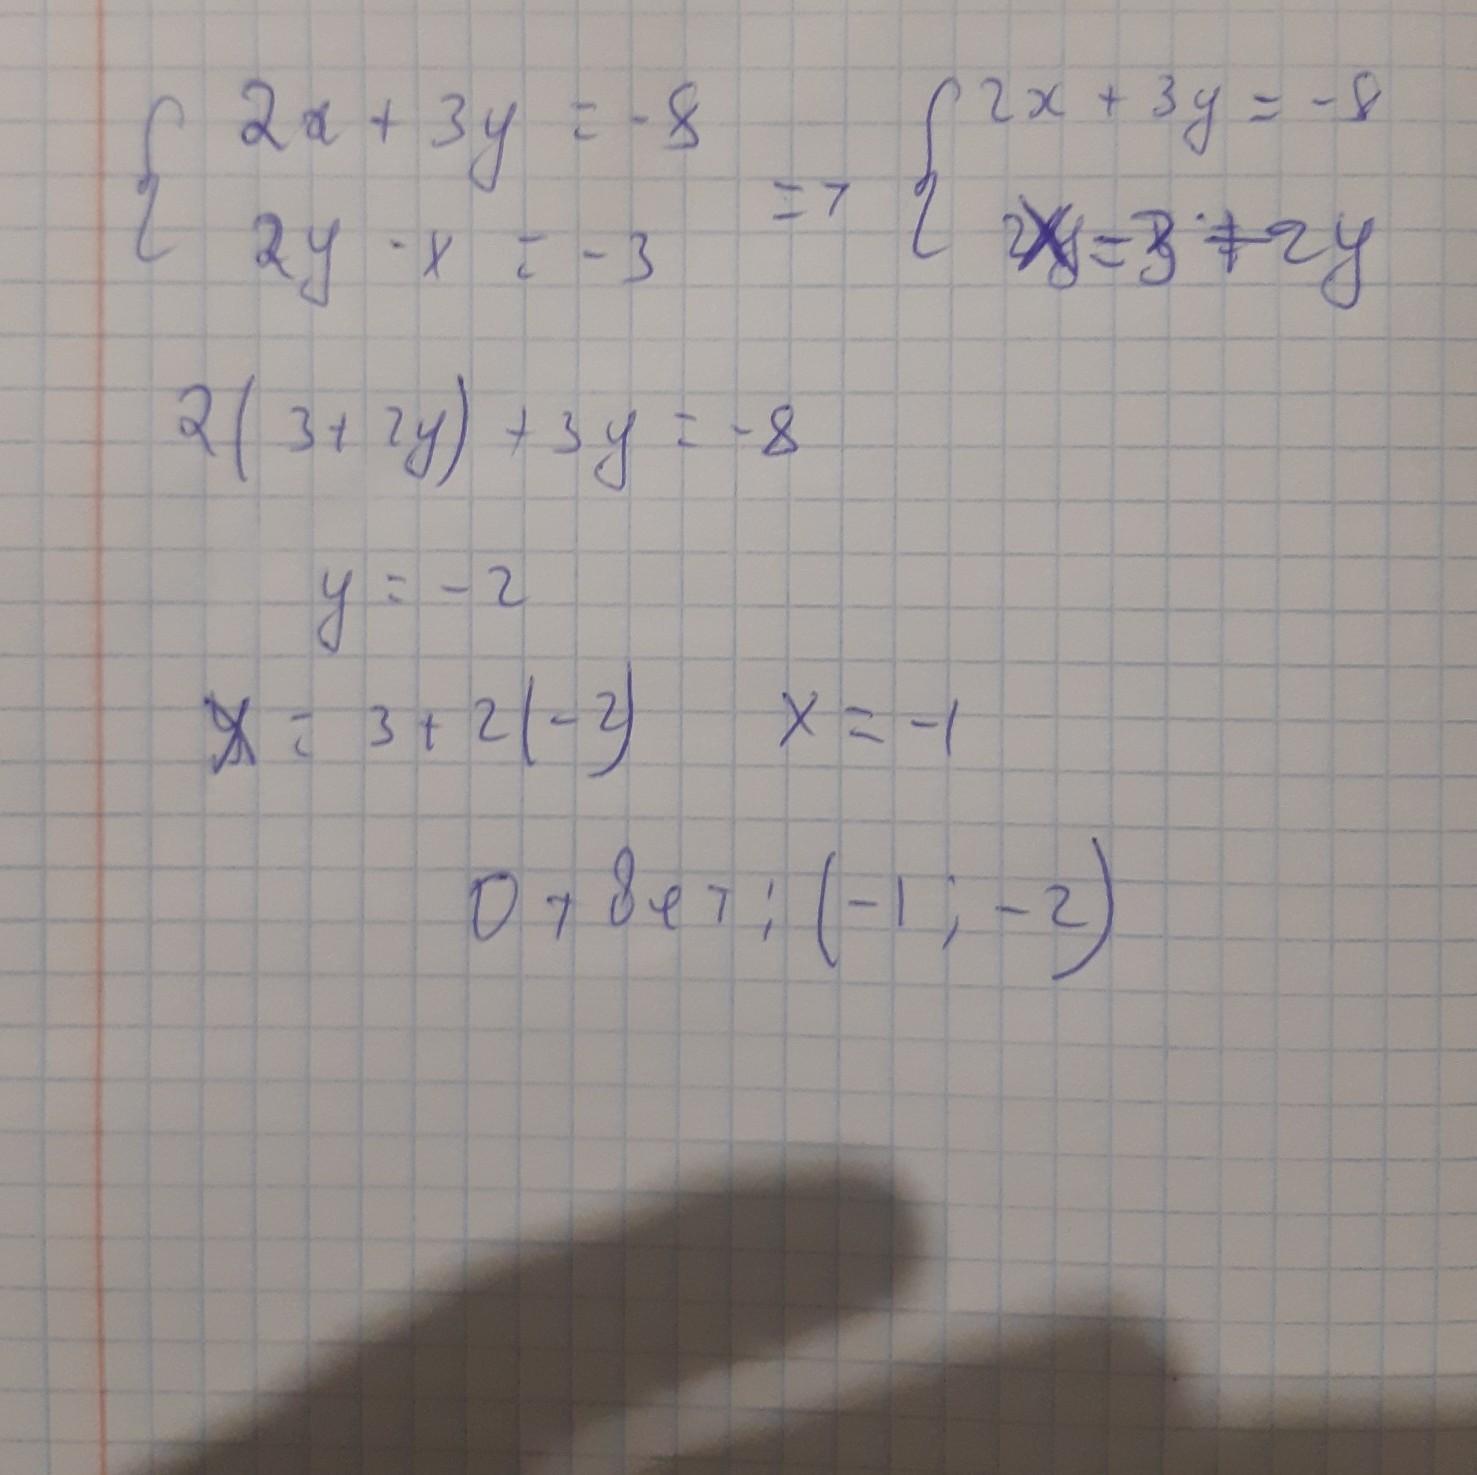 2x + 3y = -8 => 2x + 3y = -8
2y - x = -3 x = 3 + 2y
2(3 + 2y) + 3y = -8
y = -2
x = 3 + 2(-2) x = -1
Ответ: (-1; -2)